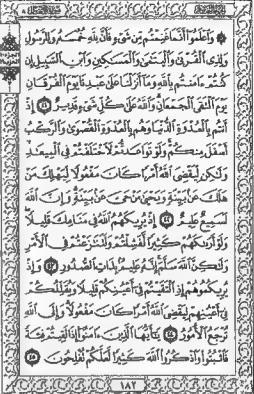 ۞ وَٱعْلَمُوٓا۟ أَنَّمَا غَنِمْتُم مِّن شَىْءٍ فَأَنَّ لِلَّهِ خُمُسَهُۥ وَلِلرَّسُولِ
وَلِذِى ٱلْقُرْبَىٰ وَٱلْيَتَـٰمَىٰ وَٱلْمَسَـٰكِينِ وَٱبْنِ ٱلسَّبِيلِ إِن
كُنتُمْ ءَامَنتُم بِٱللَّهِ وَمَآ أَنزَلْنَا عَلَىٰ عَبْدِنَا يَوْمَ ٱلْفُرْقَانِ
يَوْمَ ٱلْتَقَى ٱلْجَمْعَانِ وَٱللَّهُ عَلَىٰ كُلِّ شَىْءٍ قَدِيرٌ ٤١ إِذْ
أَنتُم بِٱلْعُدْوَةِ ٱلدُّنْيَا وَهُم بِٱلْعُدْوَةِ ٱلْقُصْوَىٰ وَٱلرَّكْبُ
أَسْفَلَ مِنكُمْ وَلَوْ تَوَاعَدتُّمْ لَٱخْتَلَفْتُمْ فِى ٱلْمِيعَـٰدِ
وَلَـٰكِن لِّيَقْضِىَ ٱللَّهُ أَمْرًا كَانَ مَفْعُولًا لِّيَهْلِكَ مَنْ
هَلَكَ عَنۢ بَيِّنَةٍ وَيَحْيَىٰ مَنْ حَىَّ عَنۢ بَيِّنَةٍ وَإِنَّ ٱللَّهَ
لَسَمِيعٌ عَلِيمٌ ٤٢ إِذْ يُرِيكَهُمُ ٱللَّهُ فِى مَنَامِكَ قَلِيلًا
وَلَوْ أَرَىٰكَهُمْ كَثِيرًا لَّفَشِلْتُمْ وَلَتَنَـٰزَعْتُمْ فِى ٱلْأَمْرِ
وَلَـٰكِنَّ ٱللَّهَ سَلَّمَ إِنَّهُۥ عَلِيمٌۢ بِذَاتِ ٱلصُّدُورِ ٤٣ وَإِذْ
يُرِيكُمُوهُمْ إِذِ ٱلْتَقَيْتُمْ فِىٓ أَعْيُنِكُمْ قَلِيلًا وَيُقَلِّلُكُمْ
فِىٓ أَعْيُنِهِمْ لِيَقْضِىَ ٱللَّهُ أَمْرًا كَانَ مَفْعُولًا وَإِلَى ٱللَّهِ
تُرْجَعُ ٱلْأُمُورُ ٤٤ يَـٰٓأَيُّهَا ٱلَّذِينَ ءَامَنُوٓا۟ إِذَا لَقِيتُمْ فِئَةً
فَٱثْبُتُوا۟ وَٱذْكُرُوا۟ ٱللَّهَ كَثِيرًا لَّعَلَّكُمْ تُفْلِحُونَ ٤٥
١٨٢